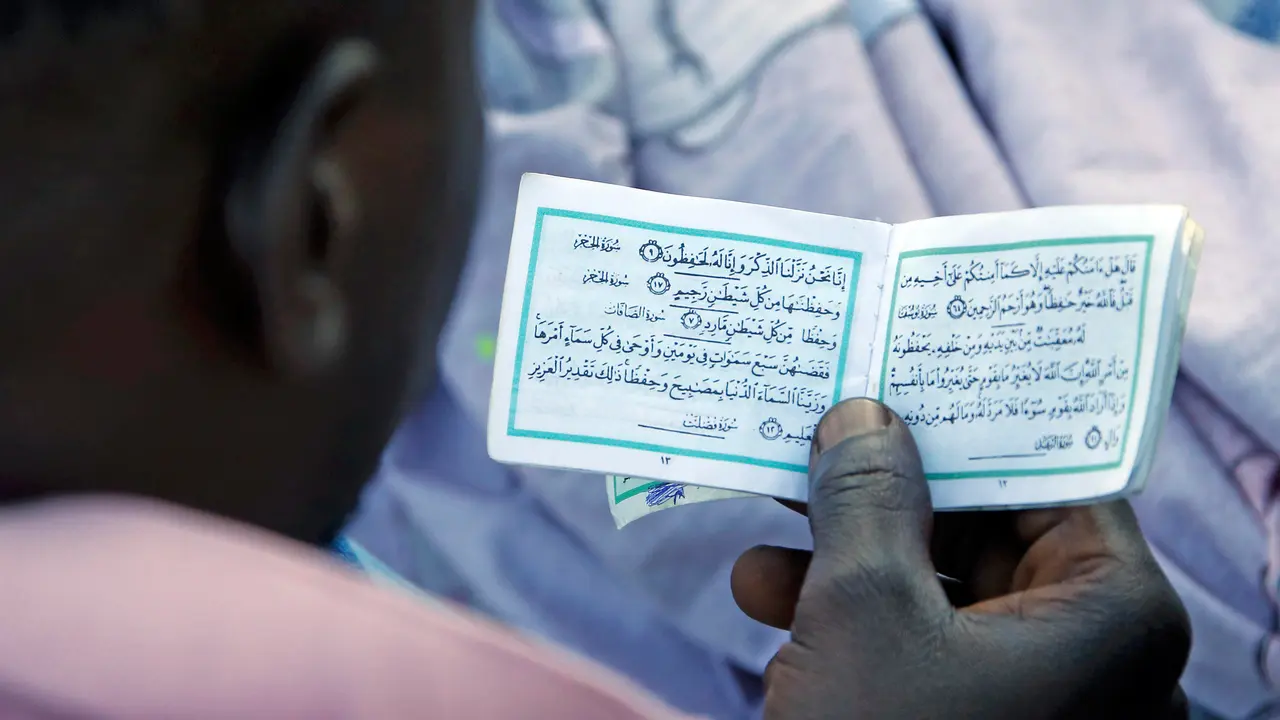 قَالَ هَلْ ءَامَنُكُمْ عَلَيْهِ إِلَّا كَمَآ أَمِنتُكُمْ عَلَىٰٓ أَخِيهِ مِن
قَبْلُ فَٱللَّهُ خَيْرٌ حَٰفِظًا وَهُوَ أَرْحَمُ ٱلرَّٰحِمِينَ ٦٤ سُورَةُ يُوسُفَ
لَهُۥ مُعَقِّبَٰتٌ مِّنۢ بَيْنِ يَدَيْهِ وَمِنْ خَلْفِهِۦ يَحْفَظُونَهُۥ
مِنْ أَمْرِ ٱللَّهِ إِنَّ ٱللَّهَ لَا يُغَيِّرُ مَا بِقَوْمٍ حَتَّىٰ يُغَيِّرُوا۟ مَا بِأَنفُسِهِمْ
وَإِذَآ أَرَادَ ٱللَّهُ بِقَوْمٍ سُوٓءًا فَلَا مَرَدَّ لَهُۥ وَمَا لَهُم مِّن دُونِهِۦ
وَالٍ ١١
١٢
إِنَّا نَحْنُ نَزَّلْنَا ٱلذِّكْرَ وَإِنَّا لَهُۥ لَحَٰفِظُونَ ٩ سُورَةُ الحِجْر
وَحَفِظْنَٰهَا مِن كُلِّ شَيْطَٰنٍ رَّجِيمٍ ١٧ سُورَةُ الحِجْر
وَحِفْظًا مِّن كُلِّ شَيْطَٰنٍ مَّارِدٍ ٧ سُورَةُ الصَّافَّات
فَقَضَىٰهُنَّ سَبْعَ سَمَٰوَاتٍ فِى يَوْمَيْنِ وَأَوْحَىٰ فِى كُلِّ سَمَآءٍ أَمْرَهَا
وَزَيَّنَّا ٱلسَّمَآءَ ٱلدُّنْيَا بِمَصَٰبِيحَ وَحِفْظًا ذَٰلِكَ تَقْدِيرُ ٱلْعَزِيزِ
ٱلْعَلِيمِ ١٢ سُورَةُ فُصِّلَتْ
١٣